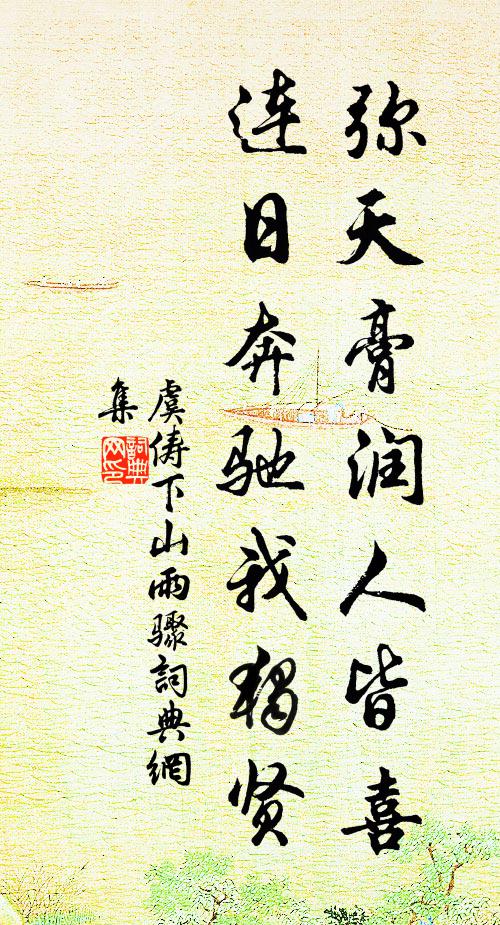 弥天膏润人皆喜
连日奔驰我独贤
虞俦下山雨骤词典網
集
詞典
网印